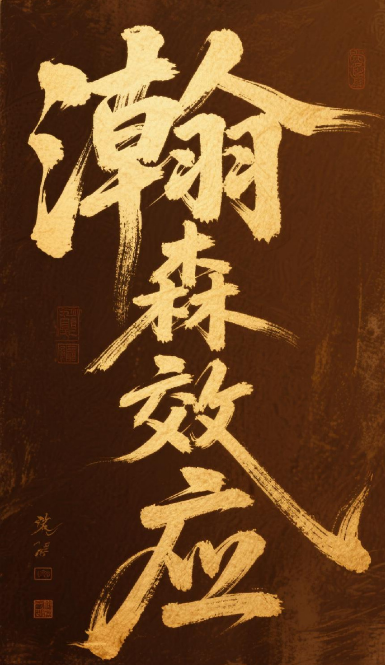 瀚森效应